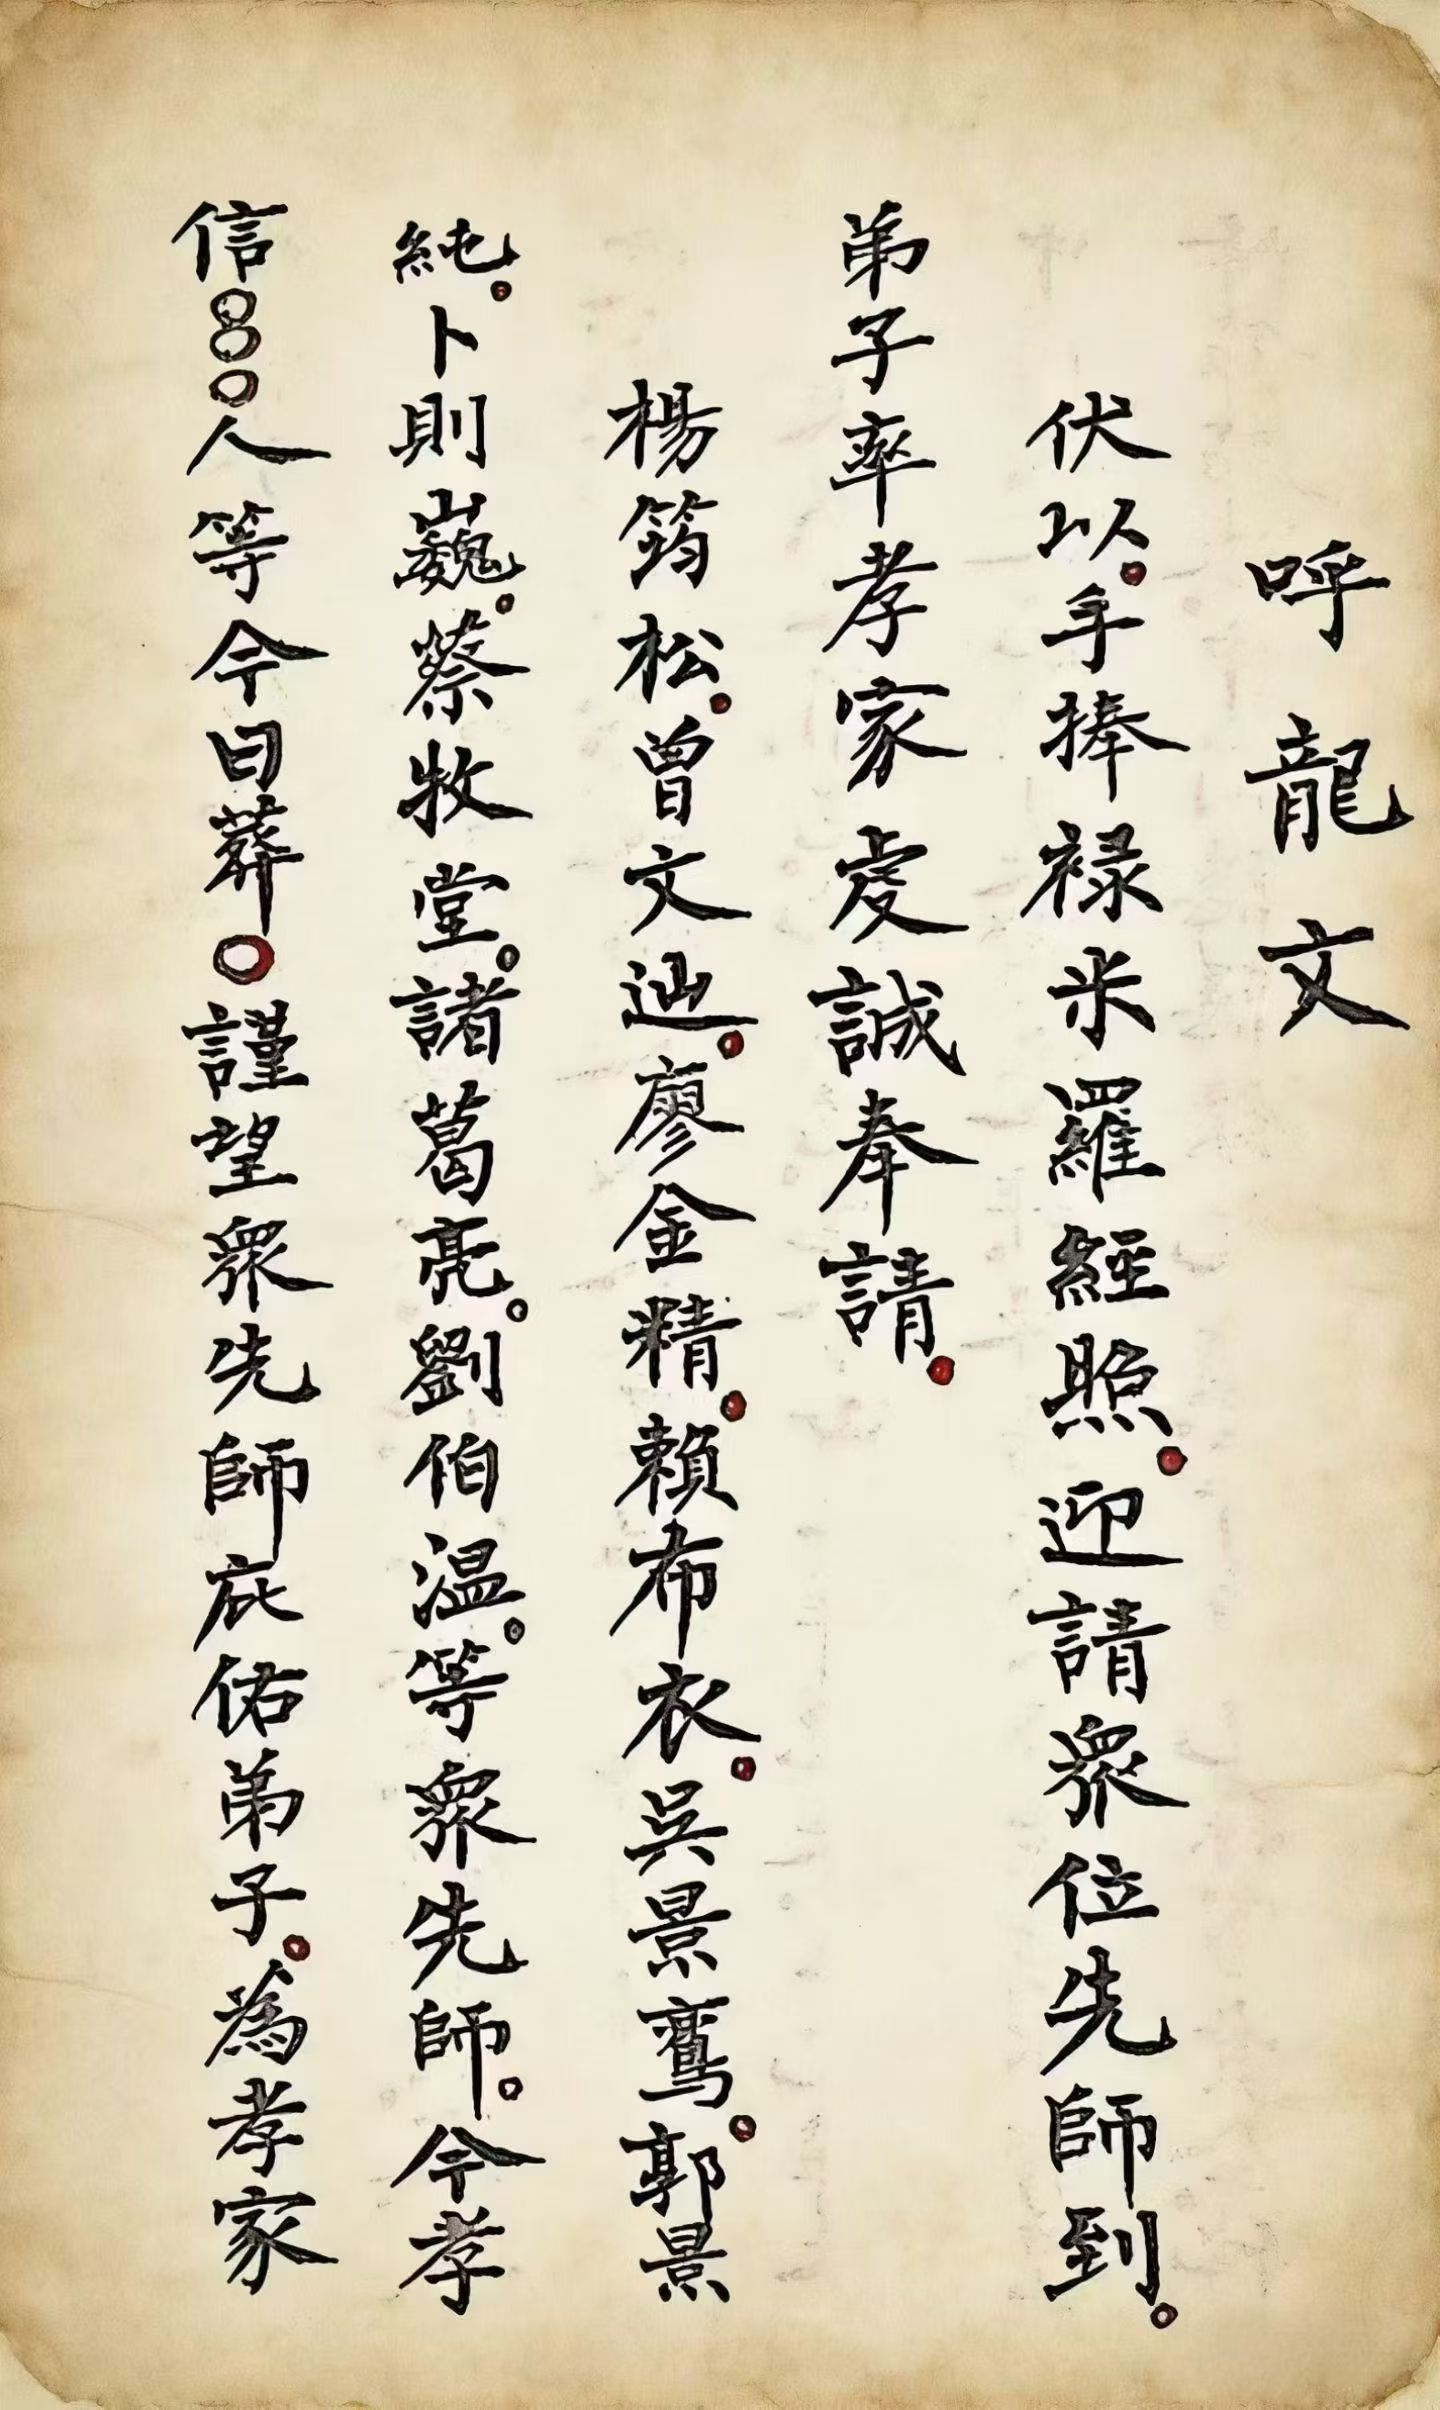 呼龍文
伏以。手捧禄米羅經照。迎請眾位先師到。
弟子率孝家虔誠奉請。
楊筠松。曾文辿。廖金精。賴布衣。吳景鸞。郭景
純。卜則巍。蔡牧堂。諸葛亮。劉伯温。等眾先師。今孝
信○○○人等今日葬○謹望眾先師庇佑弟子。為孝家